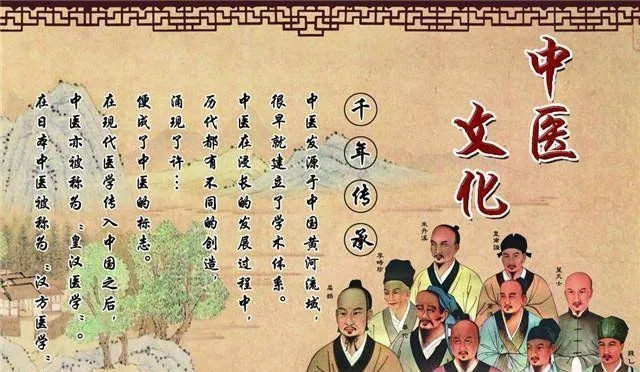 中医
文化
千年传承
中医发源于中国黄河流域，
很早就建立了学术体系。
中医在漫长的发展过程中，
历代都有不同的创造，
涌现了许…
便成了中医的标志。
在现代医学传入中国之后，
中医亦被称为“皇汉医学”。
在日本中医被称为“汉方医学”
朱丹溪
皇甫谧
叶天士
李时珍
扁鹊